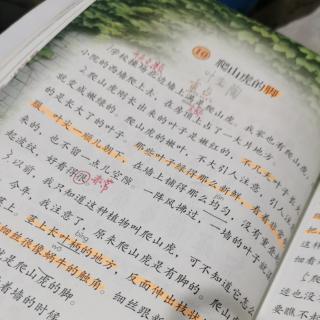 10 爬山虎的脚
叶圣陶
学校操场北边墙上满是爬山虎。我家也有爬山虎,
小院的西墙爬上去,在房顶上占了一大片地方。
爬山虎刚长出来的叶子是嫩红的,不几天叶子长
就变成嫩绿的。爬山虎的嫩叶,不大引人注意,引人注
的是长大了的叶子。那些叶子绿得那么新鲜,看着非常
服。叶尖一顺儿朝下,在墙上铺得那么均匀,没有重叠
来的,也不留一点儿空隙。一阵风拂过,一墙的叶子就
起波纹,好看得很。
以前,我只知道这种植物叫爬山虎,可不知道它怎么
今年,我注意了,原来爬山虎是有脚的。
茎上。茎上长叶柄的地方,反面伸出枝状
细丝很像蜗牛的触角。细丝跟新
就是爬山虎的脚。
着墙的时候